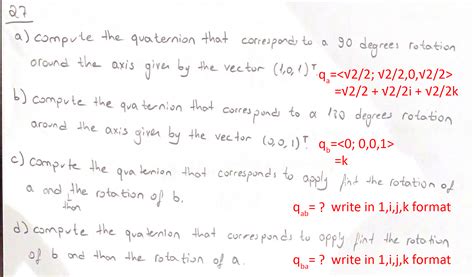 27
a) compute the quaternion that corresponds to a 90 degrees rotation
around the axis given by the vector (1,0,1)ᵀ qa=<√2/2; √2/2,0,√2/2>
=√2/2 + √2/2i + √2/2k
b) compute the quaternion that corresponds to a 180 degrees rotation
around the axis given by the vector (0,0,1)ᵀ. qb=<0; 0,0,1>
=k
c) compute the quaternion that corresponds to apply first the rotation of
a and the rotation of b.
than
qab= ? write in 1,i,j,k format
d) compute the quaternion that corresponds to apply first the rotation
of b and than the rotation of a. qba= ? write in 1,i,j,k format